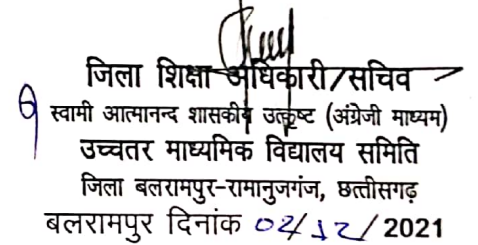 जिला शिक्षा अधिकारी/सचिव
स्वामी आत्मानन्द शासकीय उत्कृष्ट (अंग्रेजी माध्यम)
उच्चतर माध्यमिक विद्यालय समिति
जिला बलरामपुर-रामानुजगंज, छत्तीसगढ़
बलरामपुर दिनांक 02/12/2021